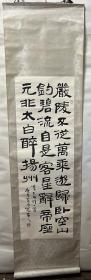 嚴陵不從萬乘遊歸卧空山
釣碧流自是客星辭帝座
元非太白醉揚州